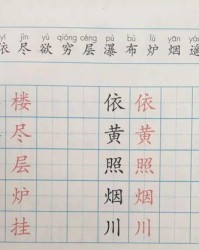 yī jìn yù qióng céng pù bù lú yān yáo
依 尽 欲 穷 层 瀑 布 炉 烟 遥
楼 依 依
尽 黄 黄
层 照 照
炉 烟 烟
挂 川 川